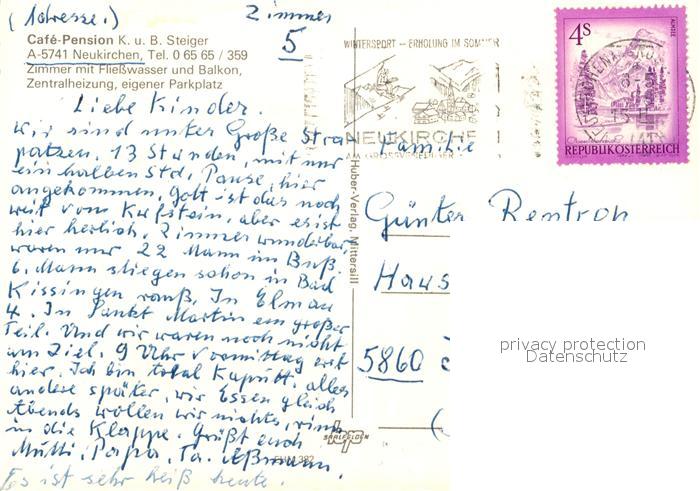 (Adresse.) Zimmer
5
Café-Pension K. u. B. Steiger
A-5741 Neukirchen, Tel. 0 65 65 / 359
Zimmer mit Fließwasser und Balkon,
Zentralheizung, eigener Parkplatz
Liebe Kinder.
wir sind unter Große Stra
patzen, 13 Stunden, mit nur
ein halben Std. Pause, hier
angekommen, Gott ist das noch
weit vom Kufstein, aber es ist
hier herlich, Zimmer wunderbar,
waren nur 22 Mann im Buß.
6. Mann stiegen schon in Bad
Kissingen rauß, In Elmau
4. In Sankt Martin ein großer
Teil. Und wir waren noch nicht
am Ziel. 9 Uhr Vormittag erst
hier. Ich bin total Kaputt, alles
andere später, wir Essen gleich
Abends wollen wir nichts, rin
in die Klappe. Grüßt euch
Mutti, Papa, Ta. Aßmann.
Es ist sehr heiß heute.
Huber-Verlag, Mittersill
SAALFELDEN
WINTERSPORT – ERHOLUNG IM SOMMER
NEUKIRCHE
AM GROSSVENEDIGER
4S
ALMSEE
REPUBLIK ÖSTERREICH
Familie
Günter Rentroh
Haus
5860
privacy protection
Datenschutz